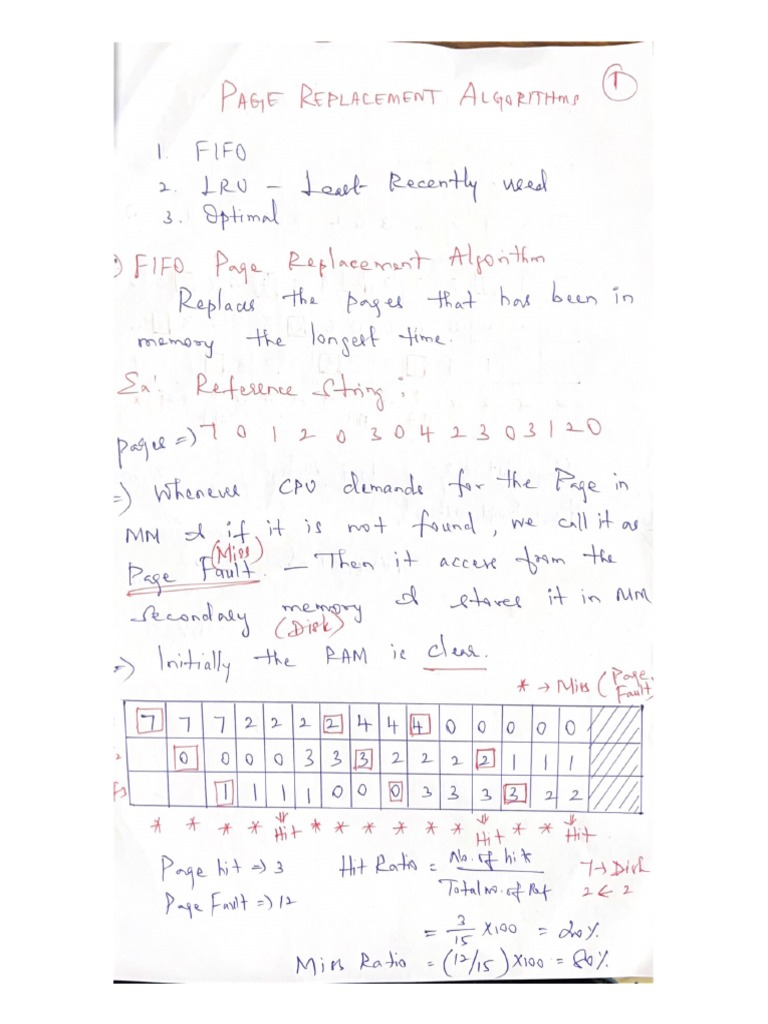 PAGE REPLACEMENT ALGORITHMS 1
1. FIFO
2. LRU – Least Recently used
3. Optimal
1) FIFO Page Replacement Algorithm
Replaces the pages that has been in
memory the longest time.
Ex: Reference String:
pages => 7 0 1 2 0 3 0 4 2 3 0 3 1 2 0
=> Whenever CPU demands for the Page in
MM & if it is not found, we call it as
(Miss)
Page Fault. – Then it access from the
secondary memory & stores it in MM
(Disk)
=> Initially the RAM is clear.
* → Miss (Page Fault)
7 7 7 2 2 2 2 4 4 4 0 0 0 0 0
2 0 0 0 0 3 3 3 2 2 2 2 1 1 1
F3 1 1 1 1 0 0 0 3 3 3 3 2 2
* * * * Hit * * * * * * Hit * * Hit
Page hit => 3 Hit Ratio = No. of hits / Total no. of Ref 7 → Disk
Page Fault => 12 2 ← 2
= 3/15 X100 = 20%.
Miss Ratio = (12/15) X100 = 80%.